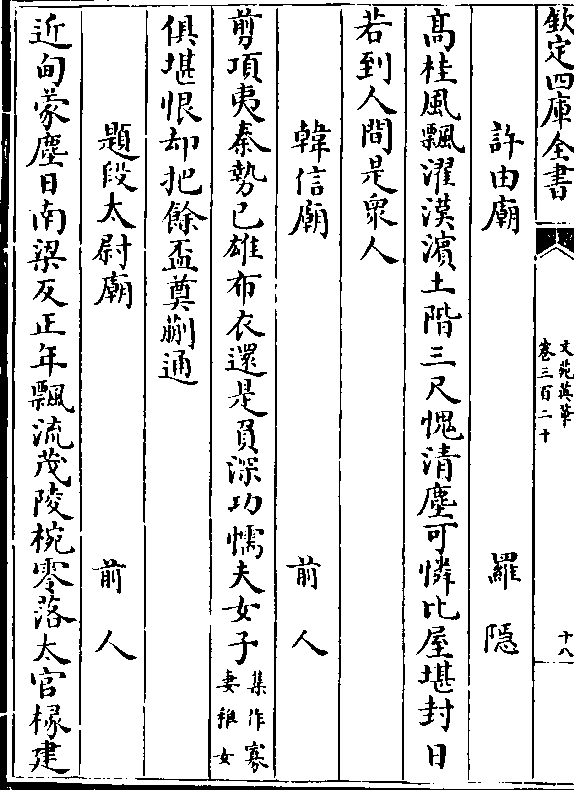 欽定四庫全書
文苑英華
卷三百二十
十八
許由廟 羅隠
髙桂風飄濯漢濵土階三尺愧清塵可憐比屋堪封日
若到人間是衆人
韓信廟 前人
剪項夷秦勢已雄布衣還是負深功懦夫女子集作寡妻稚女
俱堪恨却把餘盃奠蒯通
題段太尉廟 前人
近甸蒙塵日南梁反正年飄流茂陵椀零落太官椽建